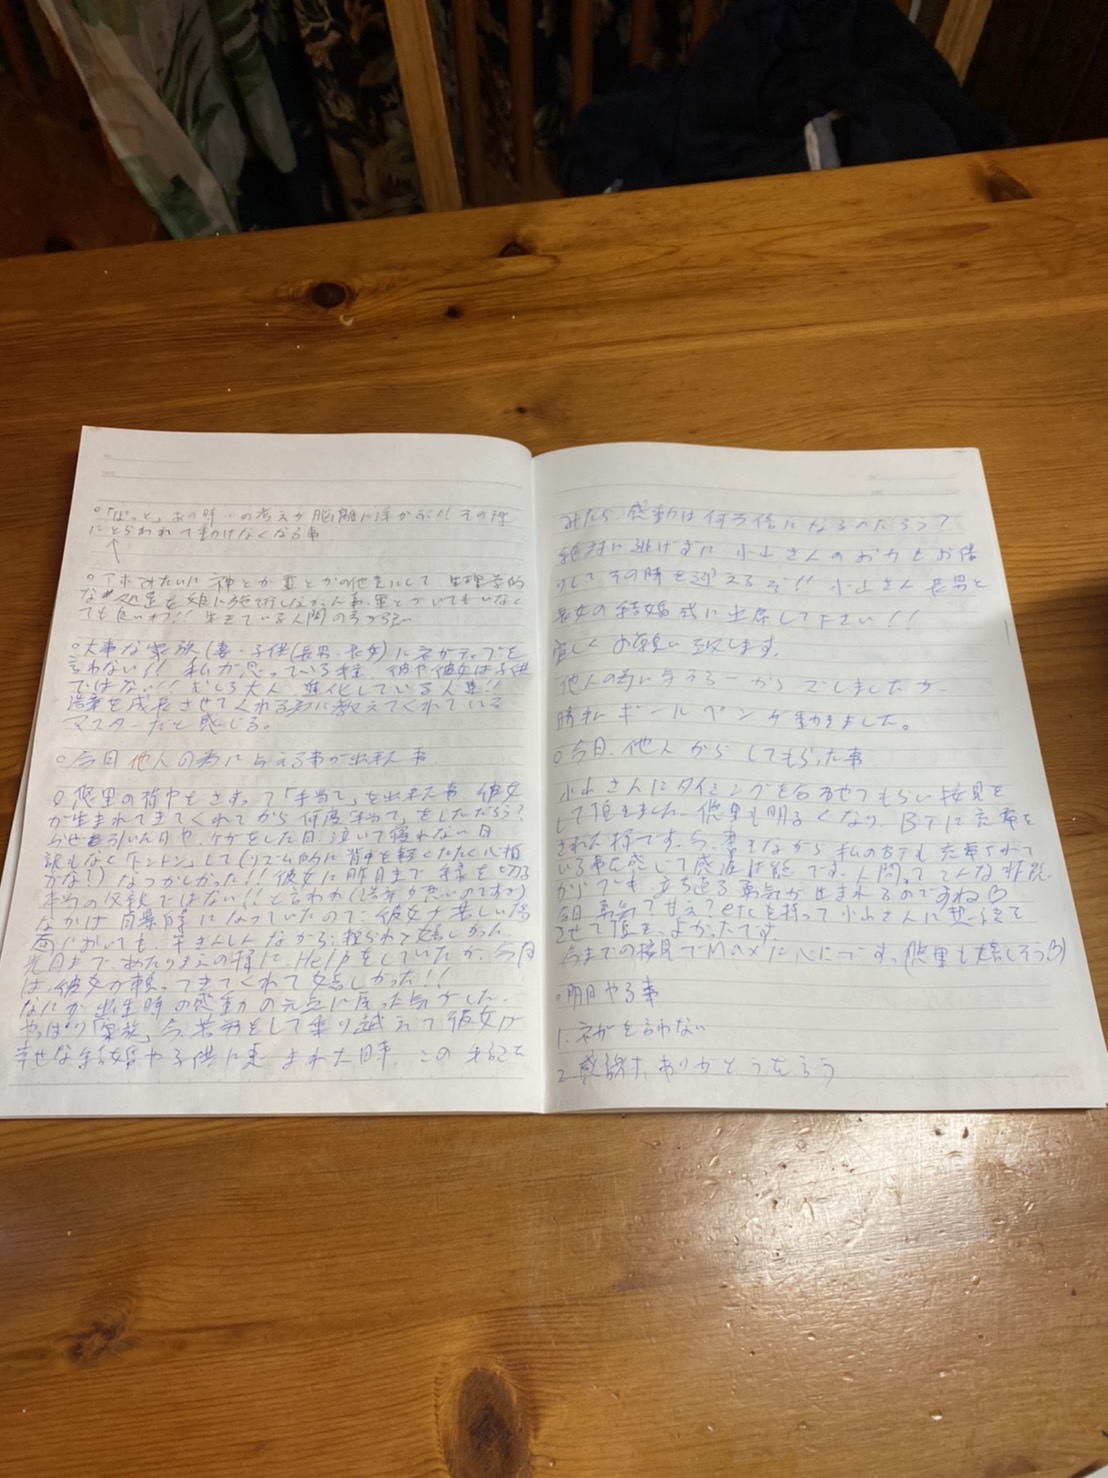 ○「ぱっと」あの時、の考えが脳裏に浮かぶ!! その時
にとらわれて動けなくなる事
↑
みたいに 神とか霊とかの他 にして 生理学的
な 処置を
ても良いわ!! 生きている人間の方が
○大事な家族(妻・子供(長男・長女)にネガティブを
言わない!! 私が思っている程、彼や彼女は子供
ではない!! むしろ大人、進化している人達!!
を成長させてくれる為に教えてくれている
マスターだと感じる。
○今日 他人の為に与える事が出来た事
○悠里の背中をさすって「手当て」を出来た事。彼女
が生まれてきてくれてから何度「手当て」をしただろう?
かぜを引いた日や、ケガをした日、泣いて寝れない日
訳もなく「トントン」して(リズム的に背中を軽くたたく心拍
かな?) なつかしかった!! 彼女に昨日まで 縁を切る
本当の父親ではない!! と言われ( が悪いのですが)
なかば自暴自棄になっていたので、彼女が苦しい場
面においても、 ながら、頼られて嬉しかった
先日まで、あたりまえの様に、Helpをしていたが、今日
は、彼女が頼ってきてくれて嬉しかった!!
なにか出生時の感動の元点に戻った気がした。
やっぱり「家族」今、苦労をして乗り越えて彼女が
幸せな結婚や子供に恵まれた時、この手記を
みたら、感動は何万倍になるのだろう?
絶対に逃げずに 小山さんのお力もお借
りして その時を迎えるぞ!! 小山さん 長男と
長女の結婚式に出席して下さい!!
宜しくお願い致します。
他人の為に与える
勝手にボールペンが動きました。
○今日、他人からしてもらった事
小山さんにタイミングを合わせてもらい接見を
して頂きました。悠里も明るくなり BTに充電を
された様です。今、書きながら 私のBTも充電されて
いる事を感じて感涙状態です。人間ってどんな状況
からでも、立ち返る勇気が生まれるのですね♡
今日、勇気?甘え?etcを持って小山さんに 絡を
させて頂き、よかったです
今までの接見でMaxに心にです。(悠里も嬉しそう♡)
○明日やる事
1. ネガを言わない
2. 感謝す、ありがとうを言う